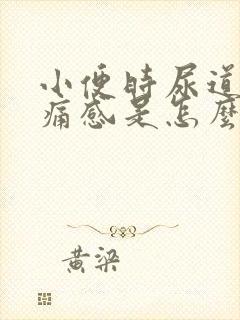 小便時尿道
痛感是怎麼
黃梁